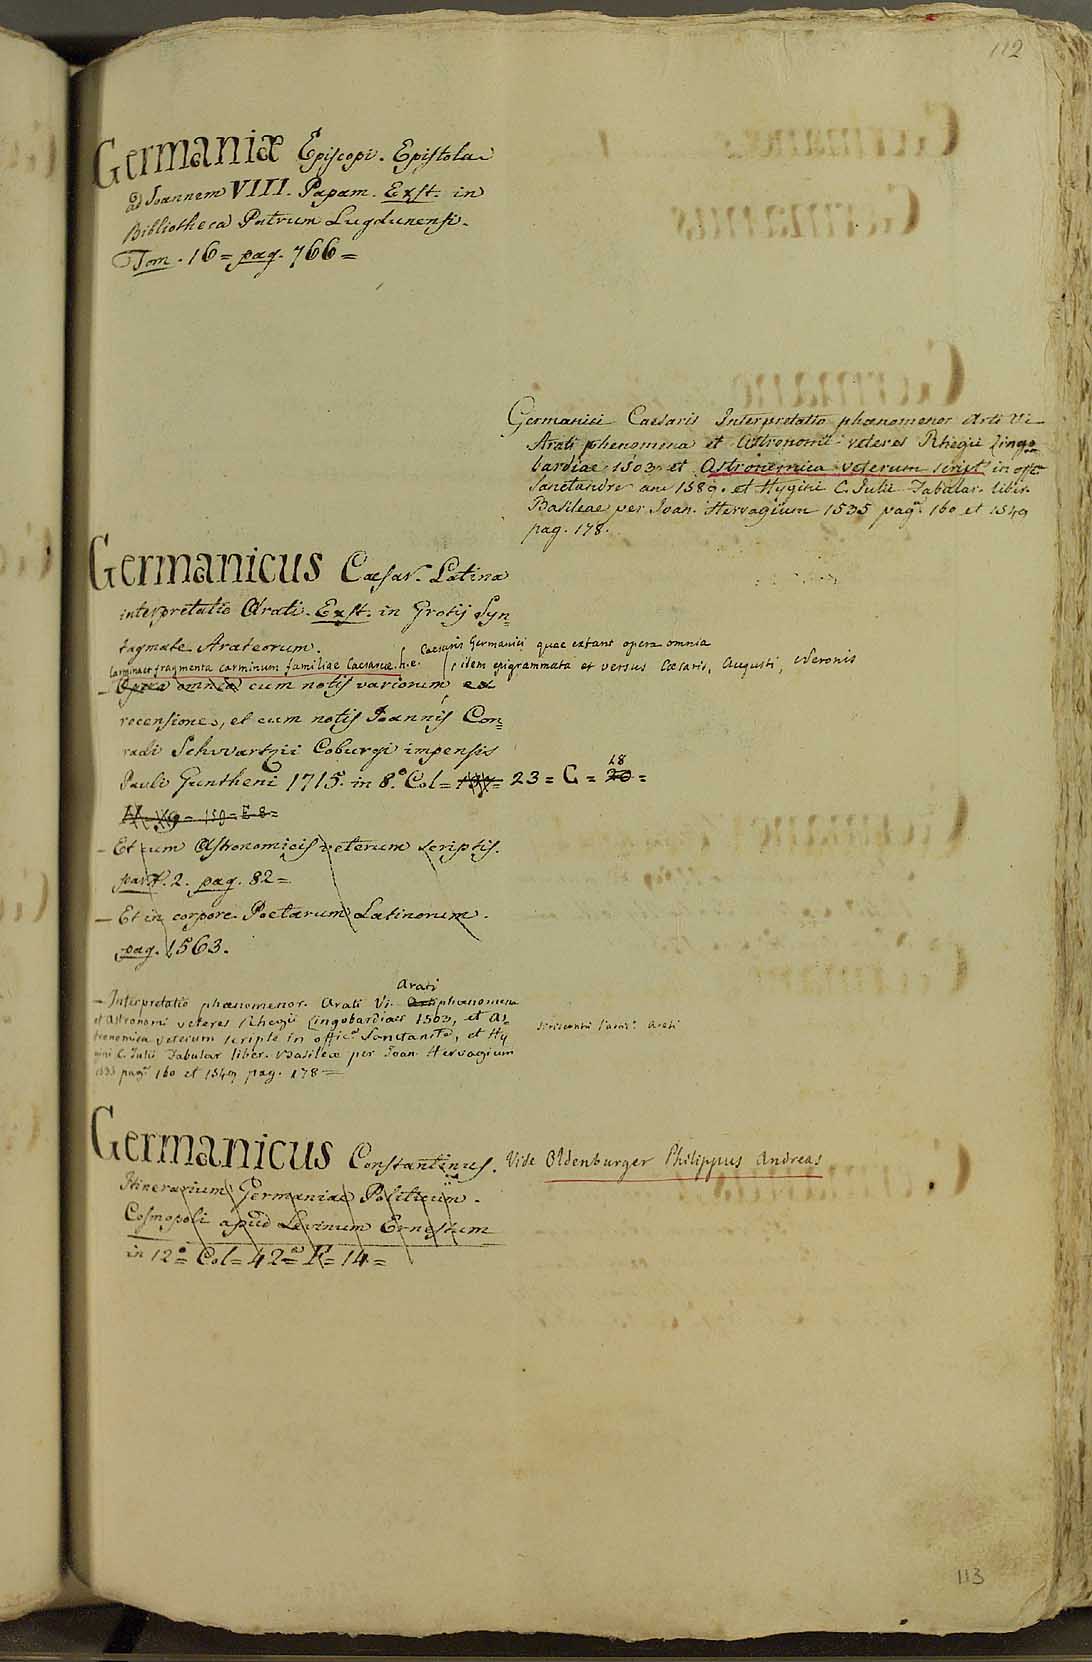 112
Germaniæ Episcopi. Epistola
ad Joannem VIII. Papam. Exst. in
Bibliotheca Patrum Lugdunensi.
Tom. 16 = pag. 766 =
Germanici Caesaris Interpretatio phænomenor Arti Vi
Arati phenomena et Astronomi veteres Rhegii Lingo
bardiae 1503 et Astronomica veterum script in offic
Sanctandre ann 1589. et Hygini C. Julii Fabular. liber
Basileae per Joan. Hervagium 1535 pag. 160 et 1549
pag. 178.
Germanicus Caesar. Latina
interpretatio Arati. Exst. in Grotij Syn=
tagmate Arateorum.
Caesaris Germanici quae extant opera omnia
Carmina et fragmenta carminum familiae Caesareæ. h.e. item epigrammata et versus Cæsaris, Augusti, Neronis
– Opera omnia cum notis variorum ex
recensione, et cum notis Joannis Con=
radi Schwartzii Coburgi impensis
Pauli Guntheni 1715. in 8.º Col = 23 = G = 18 20 =
150 = E 8 =
– Et cum Astronomicis veterum scriptis.
part. 2. pag. 82 =
– Et in corpore Poetarum Latinorum.
pag. 1563.
Arati
– Interpretatio phænomenor. Arati Vi. Arti phænomena
et Astronomi veteres Rhegii Lingobardiae 1503, et As=
tronomica veterum scripta in offic.ª Sanctandre, et Hy
gini C. Julii Fabular liber. Basileæ per Joan. Hervagium
1535 pag. 160 et 1549 pag. 178 =
Germanicus Constantinus. Vide Oldenburger Philippus Andreas
Itinerarium Germaniae Politicum.
Cosmopoli apud Levinum Ernestum
in 12º = Col = 42ª = F = 14 =
113